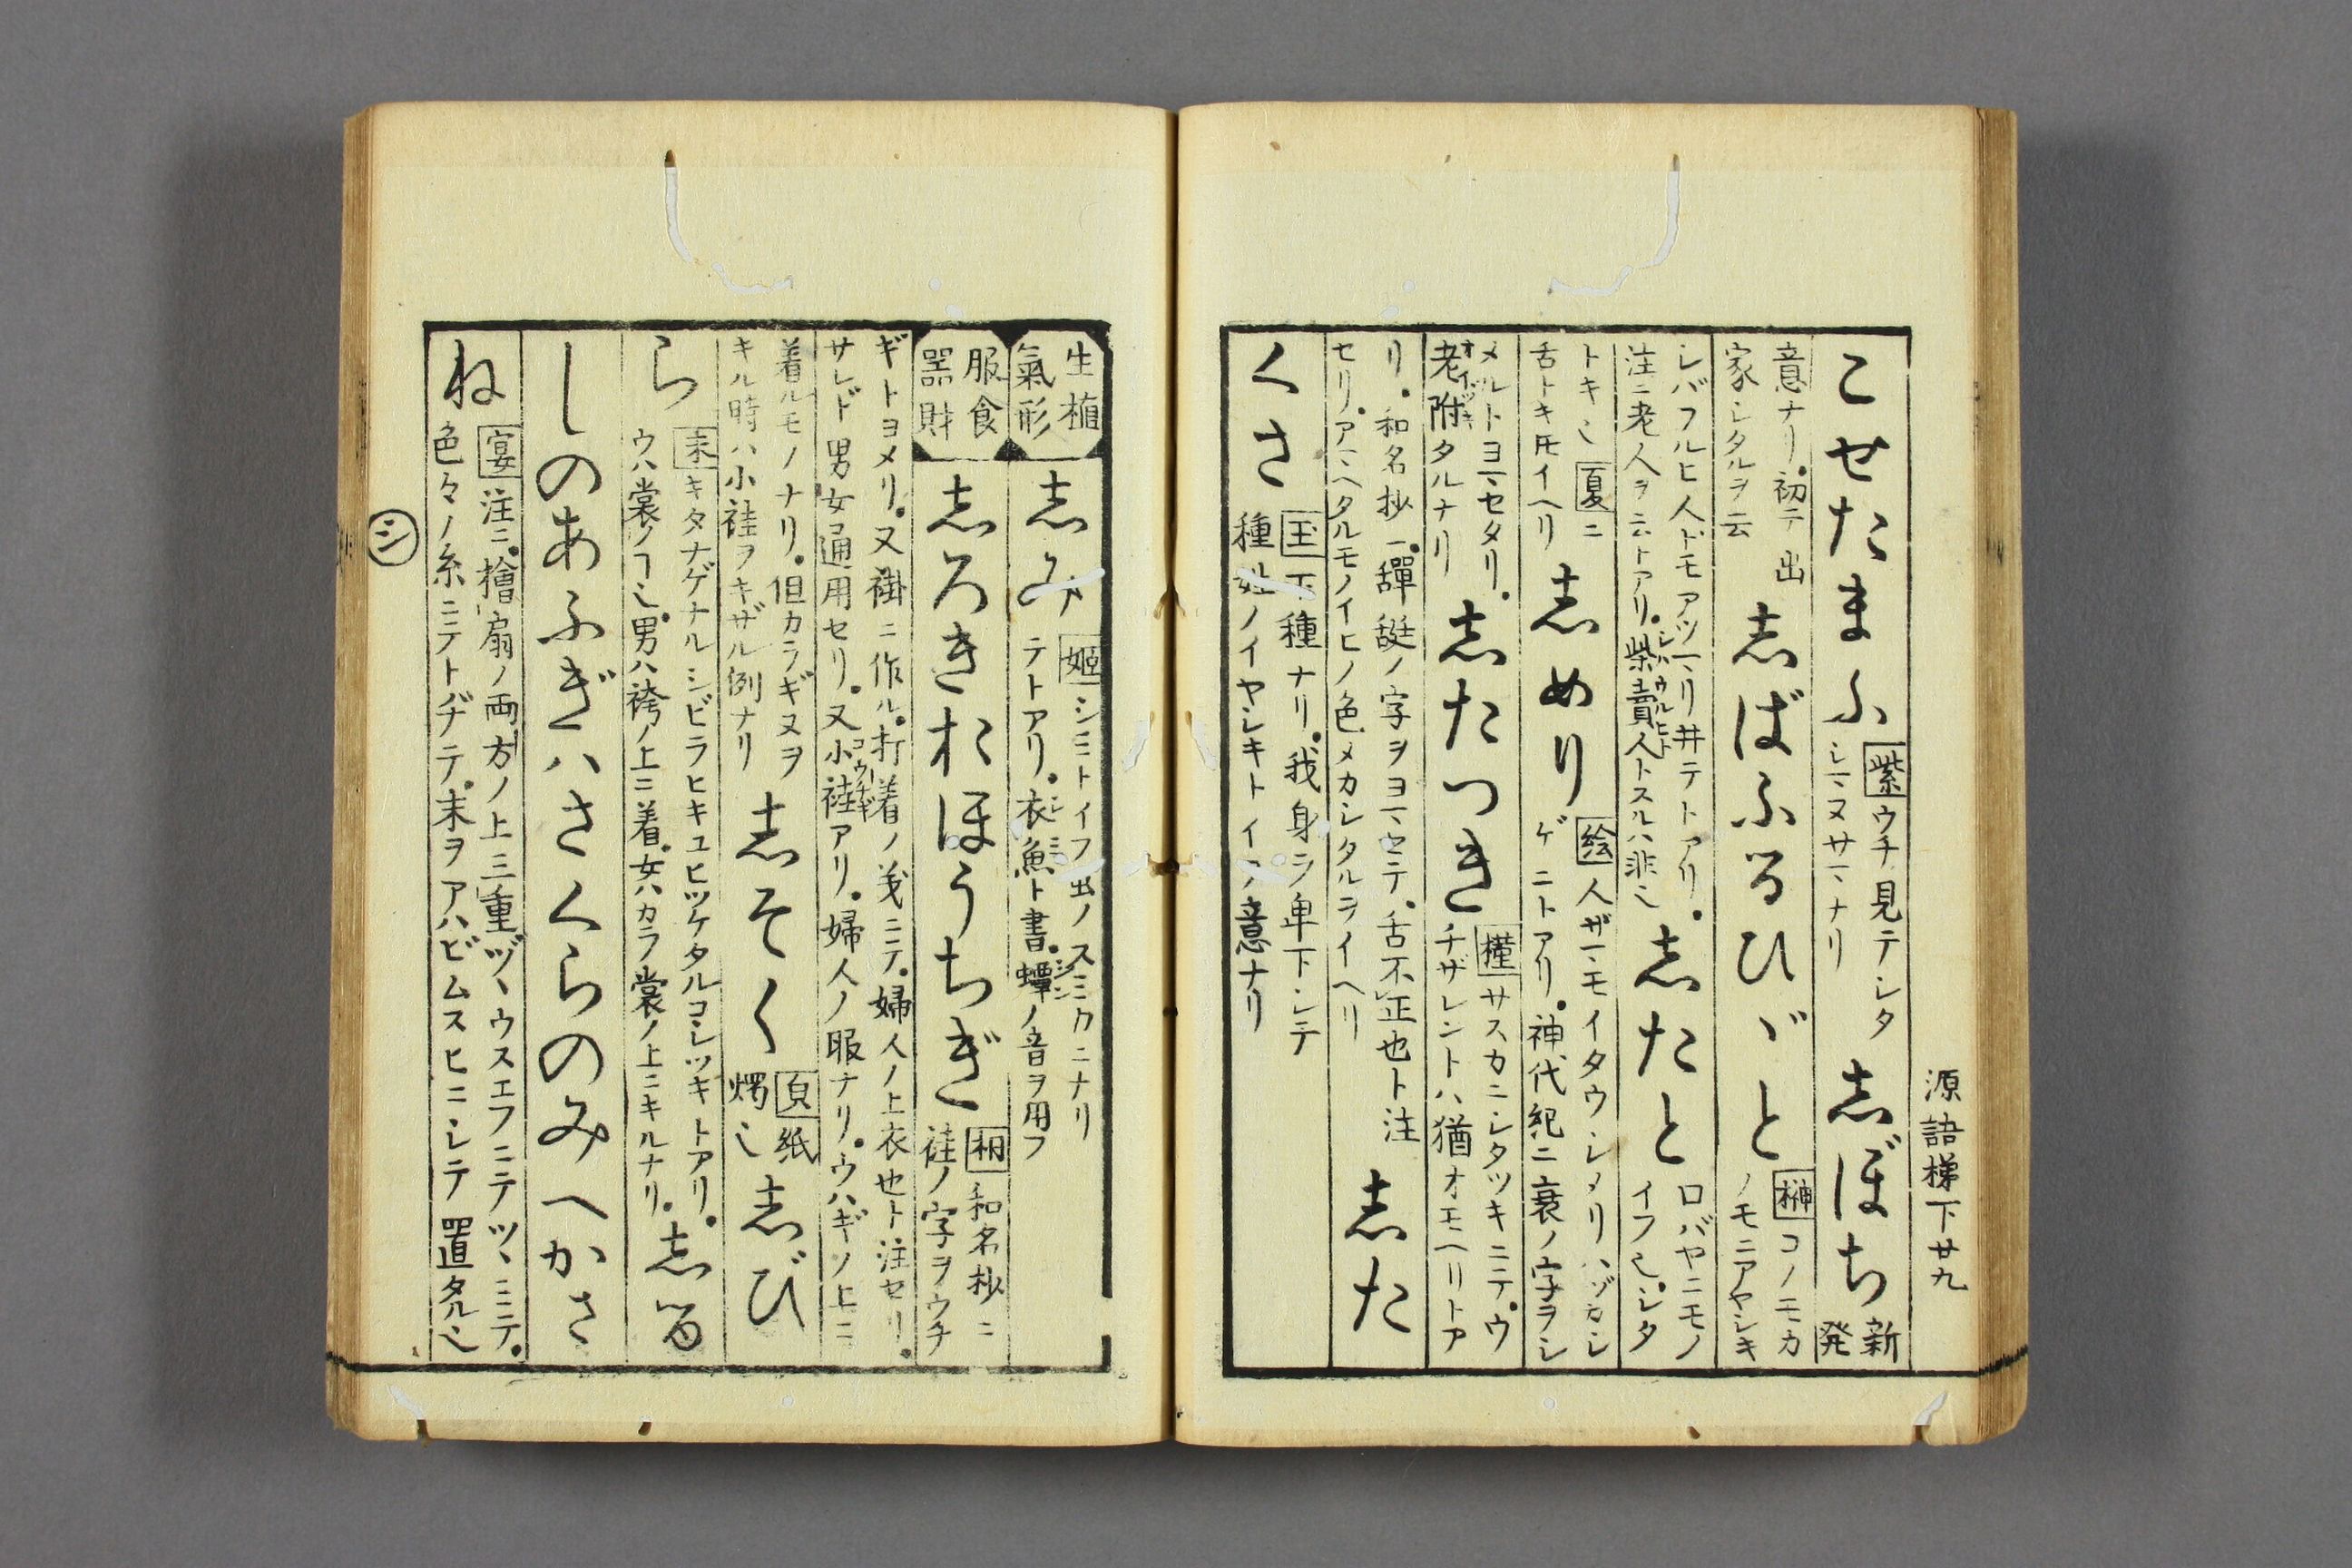 源語梯下廿九
こせたまふ 紫 ウチ見テシタ
シマヌサマナリ
志ぼち 新
発
意ナリ。初テ出
家シタルヲ云
志ばふるひゞと 榊 コノモカ
ノモニアヤシキ
シバフルヒ人ドモアツマリ井テトアリ。
注ニ老人ヲ云トアリ。柴賣人トスルハ非也
志たと 口バヤニモノ
イフ也。シタ
トキ也 夏ニ
舌トキ𪜈イヘリ
志めり 絵 人ザマモイタウシメリハヅカシ
ゲニトアリ。神代紀ニ衰ノ字ヲシ
メルトヨマセタリ。
老附タルナリ
志たつき 槿 サスカニシタツキニテ。ウ
チザレントハ猶オモヘリトア
リ。和名抄ニ。䡲䑎ノ字ヲヨマセテ。舌不正也ト注
セリ。アマヘタルモノイヒノ色メカシタルヲイヘリ
志た
くさ 玉 下種ナリ。我身ヲ卑下シテ
種姓ノイヤシキトイフ意ナリ
生植
氣形
志み 姫 シミトイフ虫ノスミカニナリ
テトアリ。衣魚ト書。蟫ノ音ヲ用フ
服食
器財
志ろきおほうちぎ 桐 和名抄ニ
袿ノ字ヲウチ
ギトヨメリ。又褂ニ作ル。打着ノ義ニテ。婦人ノ上衣也ト注セリ。
サレド男女通用セリ。又小袿アリ。婦人ノ服ナリ。ウハギノ上ニ
着ルモノナリ。但カラギヌヲ
キル時ハ小袿ヲキザル例ナリ
志そく 㒵 紙
燭也
志び
ら 末 キタナゲナルシビラヒキユヒツケタルコシツキトアリ。
ウハ裳ノヿ也。男ハ袴ノ上ニ着。女ハカラ裳ノ上ニキルナリ。
志る
しのあふぎハさくらのみへかさ
ね 宴 注ニ。檜扇ノ両方ノ上三重ヅヽウスエフニテツヽミテ。
色々ノ糸ニテトヂテ。末ヲアハビムスヒニシテ置タル也
シ